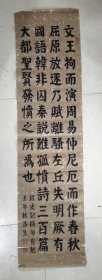 文王拘而演周易仲尼厄而作春秋
屈原放逐乃賦離騷左丘失明厥有
國語韓非囚秦說難孤憤詩三百篇
大都聖賢發憤之所為也
史記摘句自勉